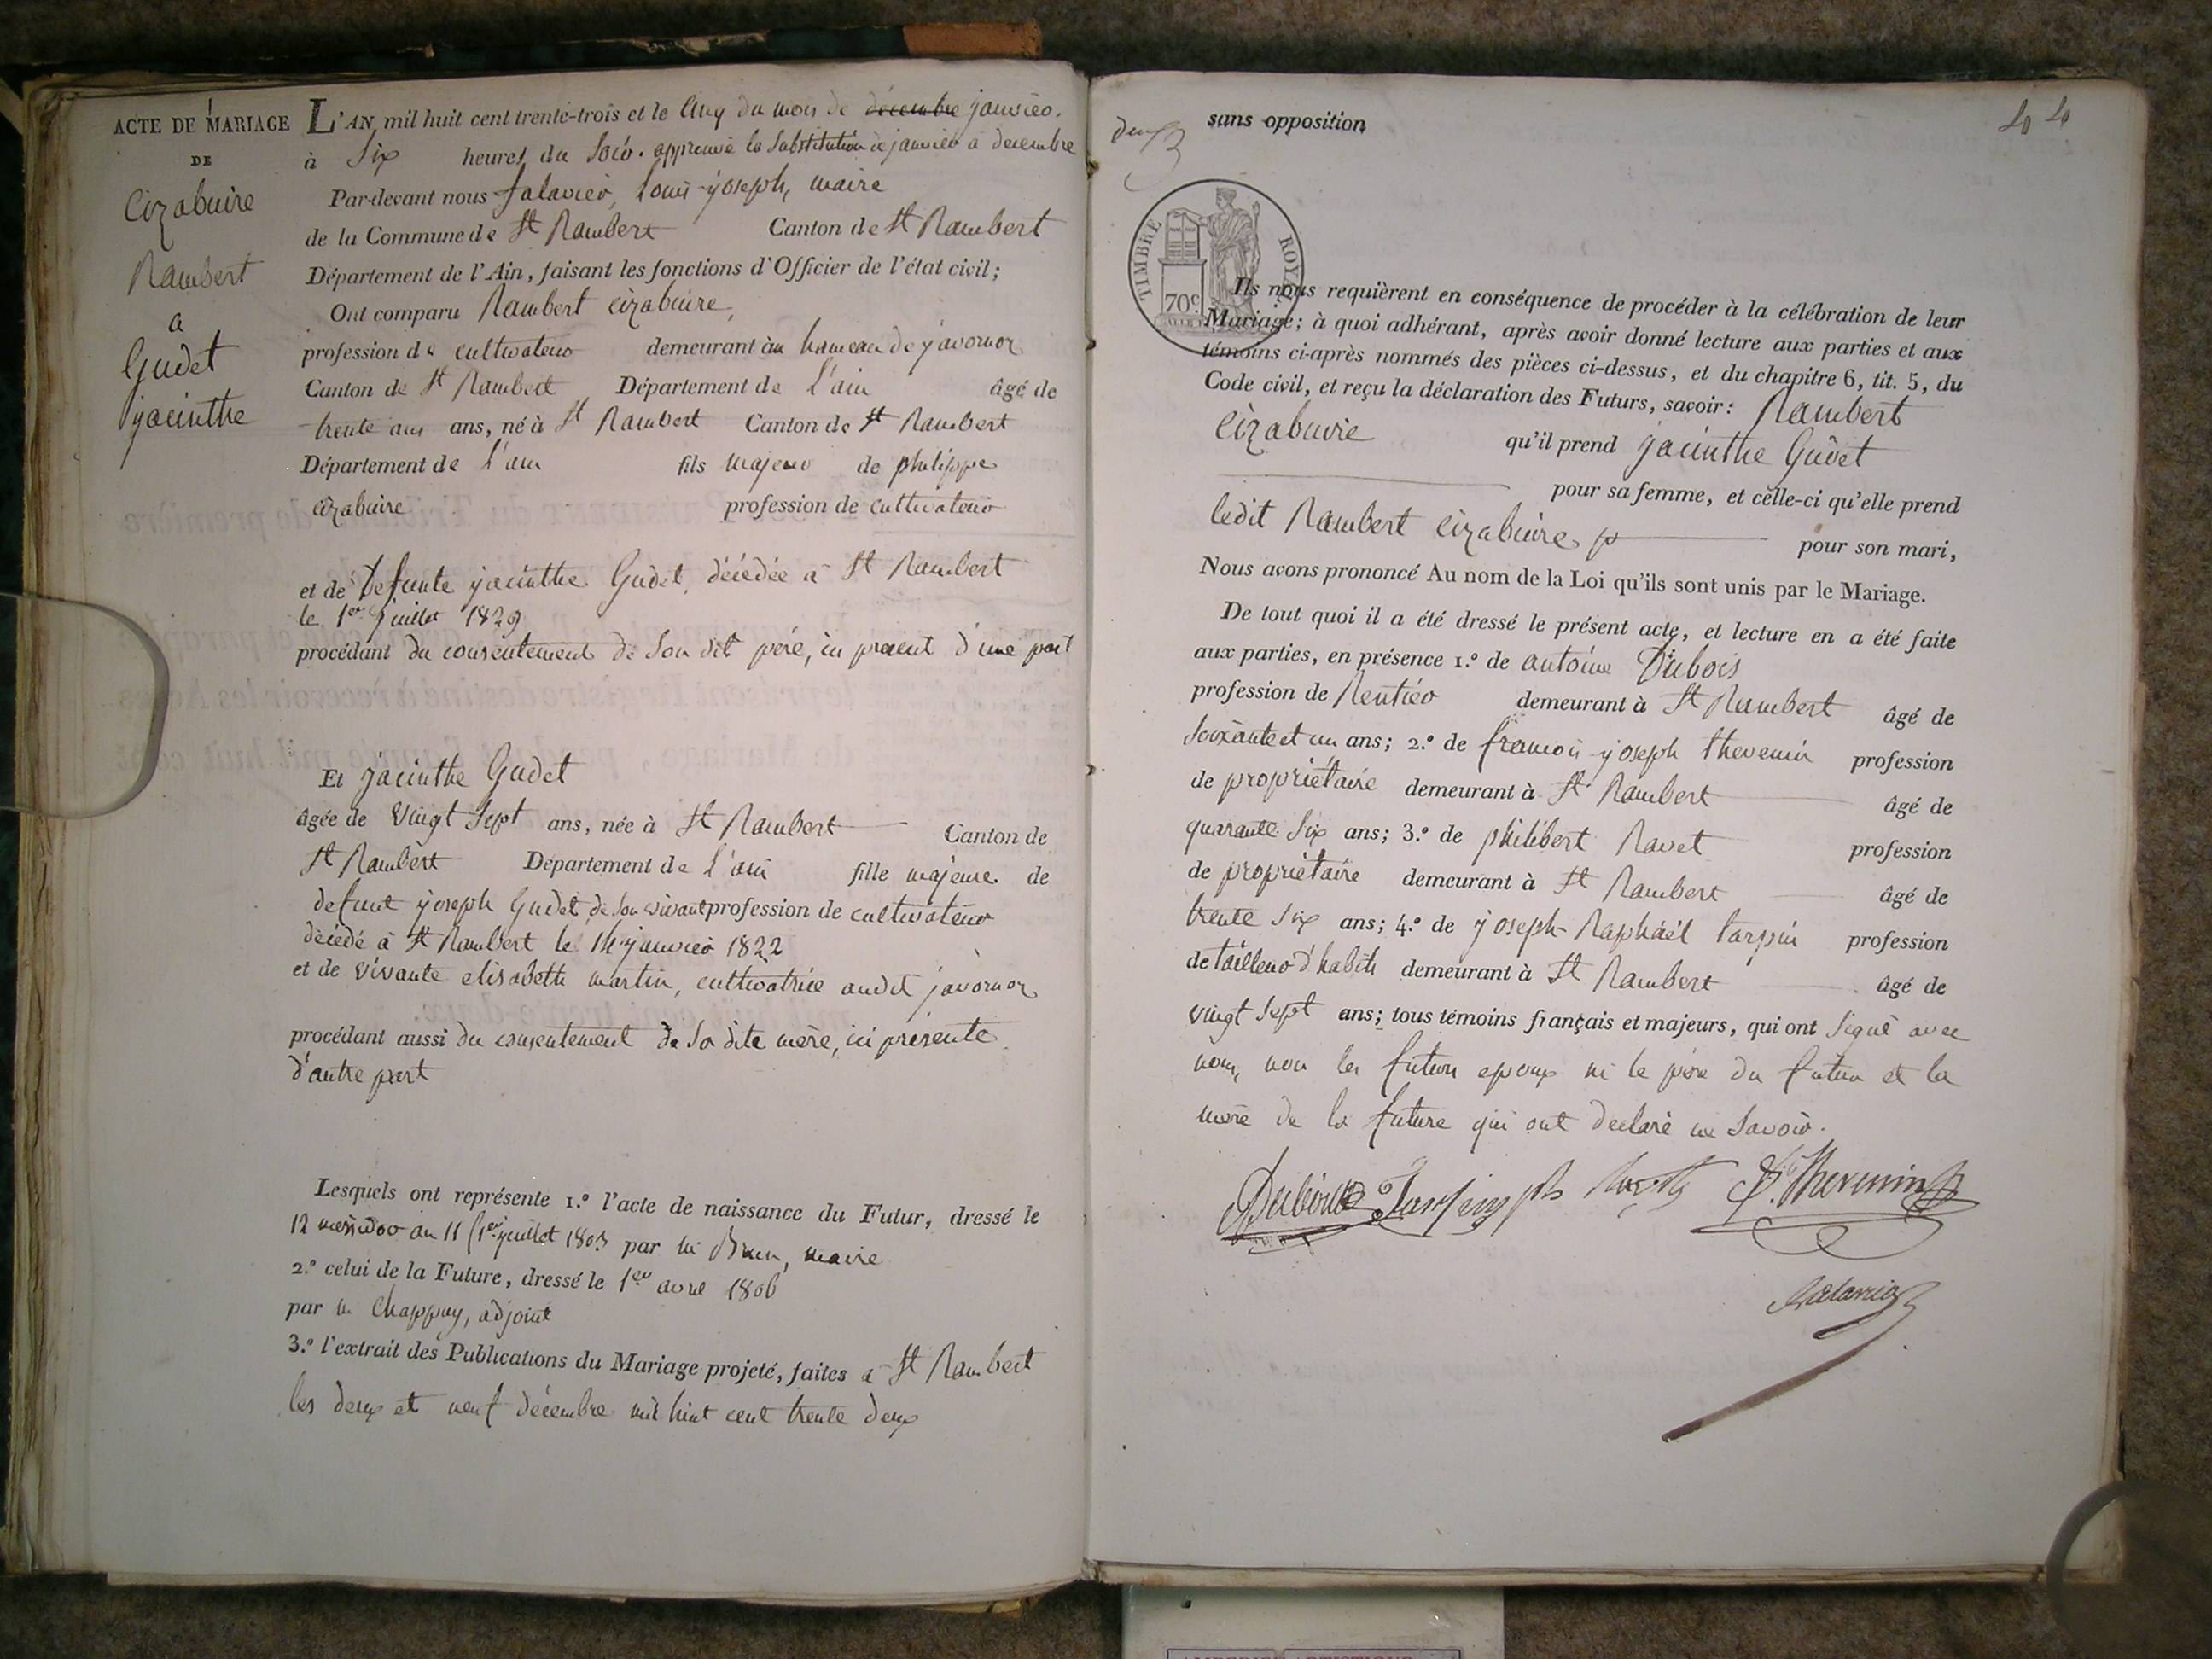 ACTE DE MARIAGE
DE
Cizabuire
Rambert
a
Gudet
jacinthe
L'AN mil huit cent trente-trois et le cinq du mois de decembre janvier.
à Six heures du soir. approuvé la substitution de janvier a decembre
Par-devant nous falavier, Louis-joseph, maire
de la Commune de St Rambert Canton de St Rambert
Département de l'Ain, faisant les fonctions d'Officier de l'état civil;
Ont comparu Rambert cizabuire,
profession de cultivateur demeurant au hameau de javornoz
Canton de St Rambert Département de L'ain âgé de
trente ans ans, né à St Rambert Canton de St Rambert
Département de L'ain fils majeur de philippe
cizabuire profession de cultivateur
et de Defunte jacinthe Gudet, décédée à St Rambert
le 1er juillet 1829
procédant du consentement de Son dit père, ici present d'une part
Et jacinthe Gudet
âgée de vingt Sept ans, née à St Rambert Canton de
St Rambert Département de L'ain fille majeure de
defunt joseph Gudet de Son vivant profession de cultivateur
décédé à St Rambert le 14 janvier 1822
et de vivante elisabeth martin, cultivatrice audit javornoz
procédant aussi du consentement de Sa dite mère, ici présente
d'autre part
Lesquels ont représente 1.º l'acte de naissance du Futur, dressé le
12 messidor an 11 (1er juillet 1803 par Mr Brun, maire
2.º celui de la Future, dressé le 1er avril 1806
par M. Chappuy, adjoint
3.º l'extrait des Publications du Mariage projeté, faites à St Rambert
les deux et neuf décembre mil huit cent trente deux
sans opposition
TIMBRE ROYAL
70c
Ils nous requièrent en conséquence de procéder à la célébration de leur
Mariage; à quoi adhérant, après avoir donné lecture aux parties et aux
témoins ci-après nommés des pièces ci-dessus, et du chapitre 6, tit. 5, du
Code civil, et reçu la déclaration des Futurs, savoir: Rambert
Cizabuire qu'il prend jacinthe Gudet
pour sa femme, et celle-ci qu'elle prend
ledit Rambert cizabuire pour son mari,
Nous avons prononcé Au nom de la Loi qu'ils sont unis par le Mariage.
De tout quoi il a été dressé le présent acte, et lecture en a été faite
aux parties, en présence 1.º de antoine Dubois
profession de Rentier demeurant à St Rambert âgé de
Soixante et un ans; 2.º de françois-joseph thevenin profession
de propriétaire demeurant à St Rambert âgé de
quarante Six ans; 3.º de philibert Ravet profession
de propriétaire demeurant à St Rambert âgé de
trente Six ans; 4.º de joseph-Raphaél tarpin profession
de tailleur d'habits demeurant à St Rambert âgé de
vingt Sept ans; tous témoins français et majeurs, qui ont Signé avec
nous, non les futurs epoux ni le père du futur et la
mère de la future qui ont declaré ne Savoir.